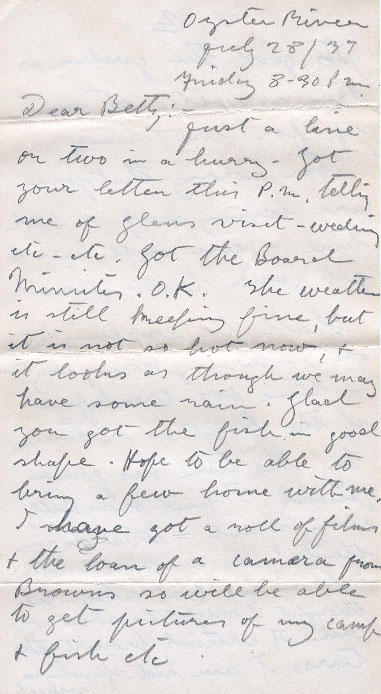 Oyster River
July 23/37
Friday 8-30 P.m.
Dear Betty:-
Just a line
or two in a hurry - Got
your letter this P.m. telling
me of Glens visit - weding
etc - etc. Got the Board
Minutes. O.K. The weather
is still keeping fine, but
it is not so hot now, +
it looks as though we may
have some rain. Glad
you got the fish in good
shape. Hope to be able to
bring a few home with me.
I have got a roll of films
+ the loan of a camera from
Browns so will be able
to get pictures of my camp
+ fish etc